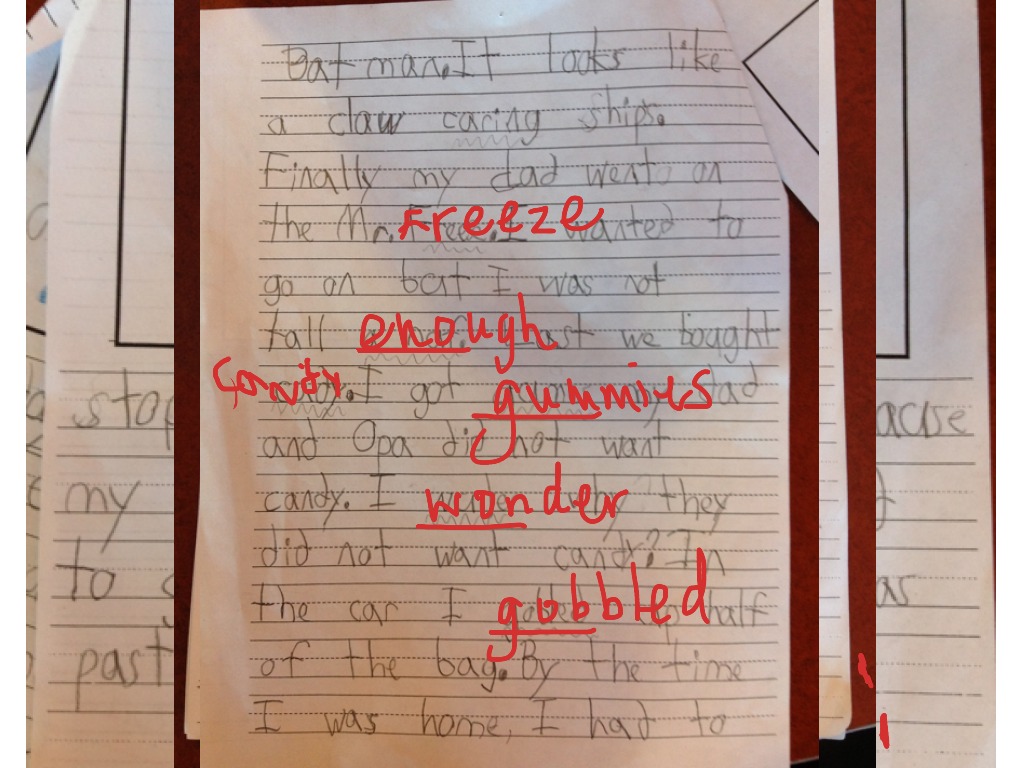 Batman. It looks like
a claw caring ships.
Finally my dad went on
the Mr. Freeze. I wanted to
go on but I was not
tall enough. Last we bought
candy. I got gummies dad
and Opa did not want
candy. I wonder why they
did not want candy? In
the car I gobbled up half
of the bag. By the time
I was home, I had to
stop
my
to
past
ause
as